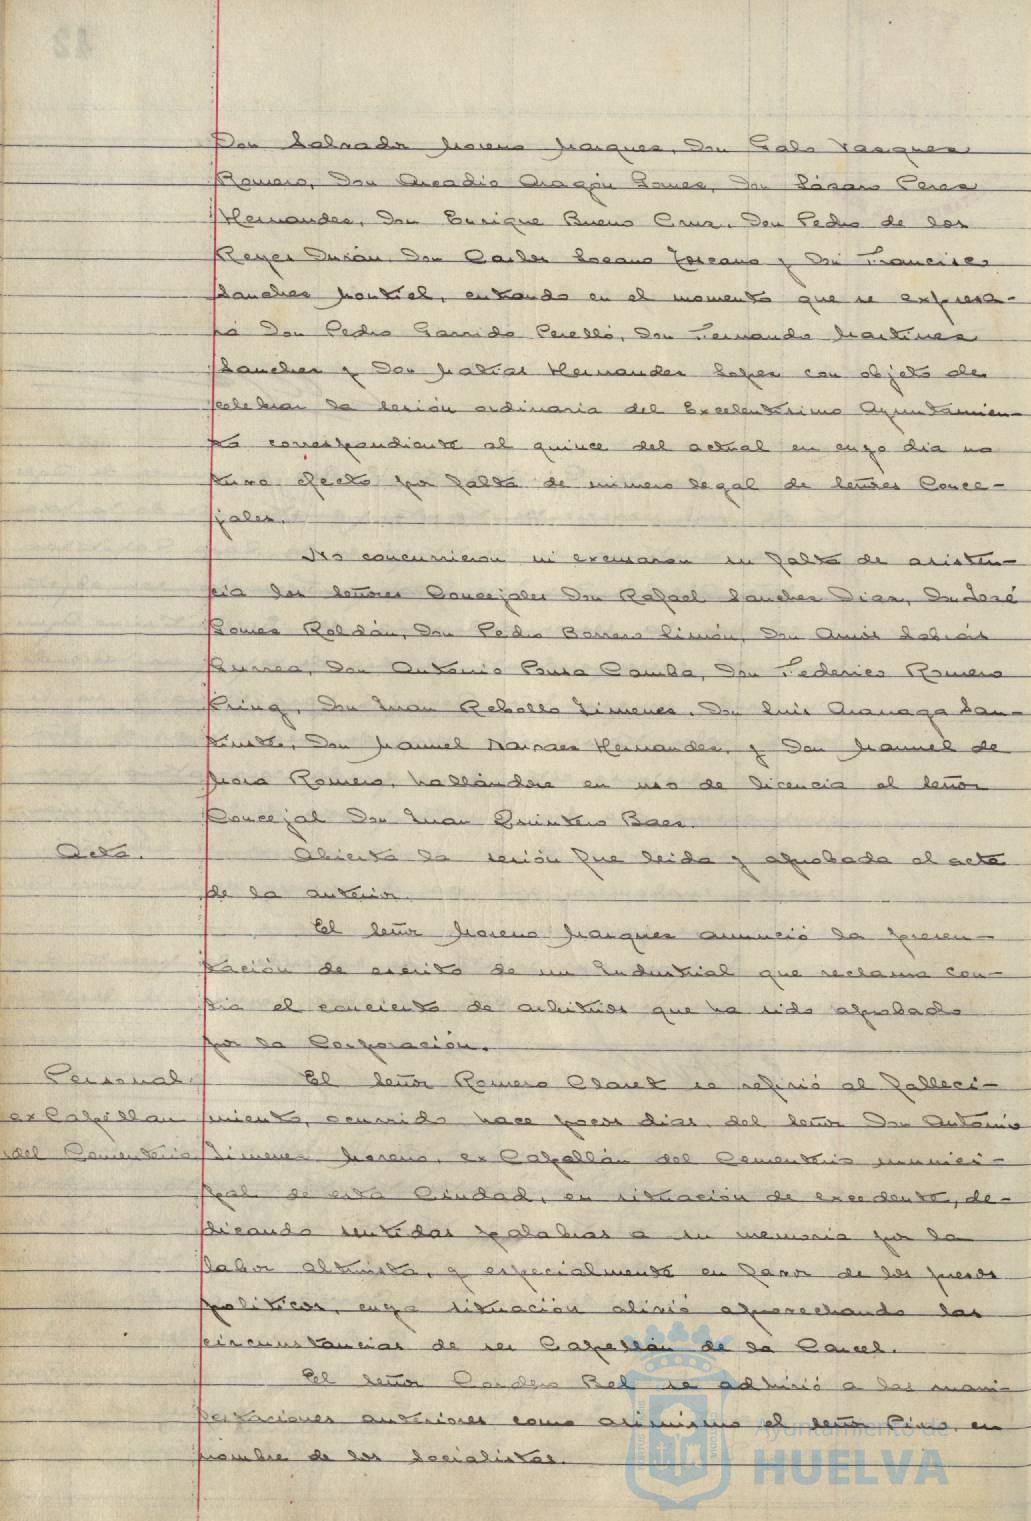 Don Salvador Moreno Marquez, Don Galo Vazquez
Romero, Don Arcadio Aragón Gomez, Don Lázaro Perez
Hernandez, Don Enrique Bueno Cruz, Don Pedro de los
Reyes Durán, Don Carlos Lozano Toscano y Don Francisco
Sanchez Montiel, entrando en el momento que se expresa-
rá Don Pedro Garrido Perelló, Don Fernando Martinez
Sanchez y Don Matias Hernandez Lopez con objeto de
celebrar la sesión ordinaria del Excelentisimo Ayuntamien-
to correspondiente al quince del actual en cuyo dia no
tuvo efecto por falta de número legal de señores Conce-
jales.
No concurrieron ni excusaron su falta de asisten-
cia los señores Concejales Don Rafael Sanchez Diaz, Don José
Gomez Roldán, Don Pedro Borrero Limón, Don Amós Sabrás
Gurrea, Don Antonio Pousa Camba, Don Federico Romero
Don Juan Rebollo Jimenez, Don Luis San-
Don Manuel Narvaez Hernandez, y Don Manuel de
Mora Romero, hallándose en uso de licencia el señor
Concejal Don Juan Quintero Baez.
Acta.
Abierta la sesión fue leida y aprobada el acta
de la anterior.
El señor Moreno Marquez anunció la presen-
tación de escrito de un Industrial que reclama con-
tra el concierto de arbitrios que ha sido aprobado
por la Corporación.
Personal.
El señor Romero Claret se refirió al falleci-
ex Capellan
miento, ocurrido hace pocos dias, del señor Don Antonio
del Cementerio
Jimenez Moreno, ex Capellán del Cementerio munici-
pal de esta Ciudad, en situación de excedente, de-
dicando sentidas palabras a su memoria por la
labor altruista, y especialmente en favor de los presos
politicos, cuya situación alivió aprovechando las
circunstancias de ser Capellán de la Carcel.
El señor Cordero Bel se adhirió a las mani-
festaciones anteriores como asimismo el señor Pino, en
nombre de los socialistas.
Ayuntamiento de
HUELVA